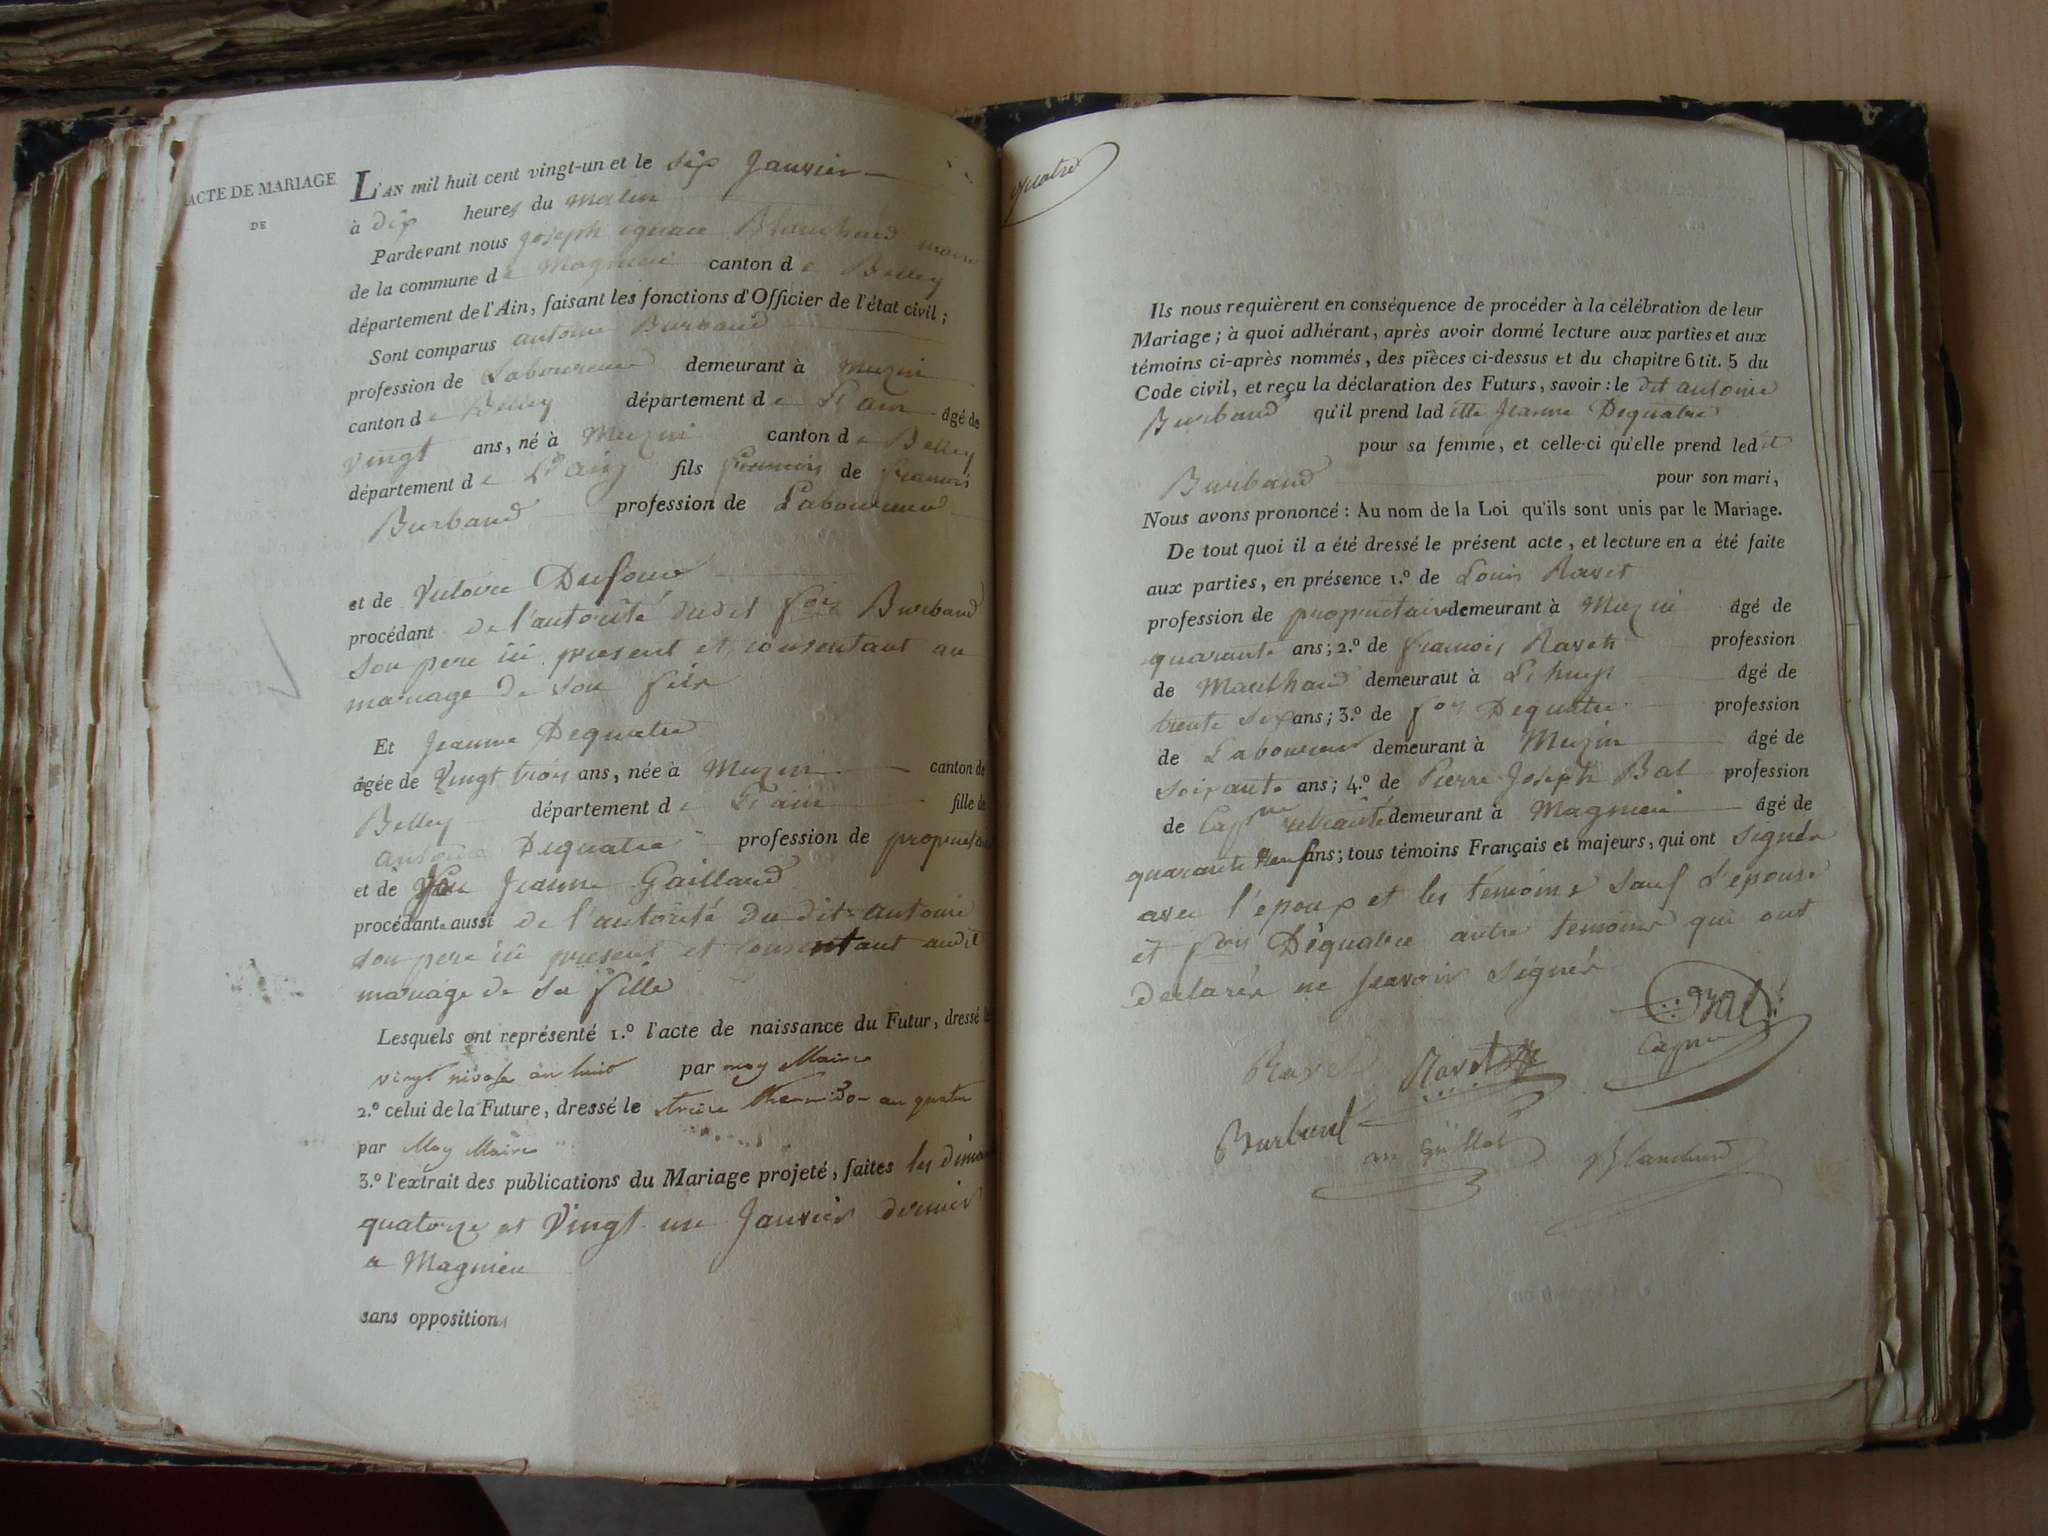 ACTE DE MARIAGE
DE
L'AN mil huit cent vingt-un et le dix Janvier
à dix heures du matin
Pardevant nous Joseph ignace Blanchard maire
de la commune de Magnieu canton de Belley
département de l'Ain, faisant les fonctions d'Officier de l'état civil;
Sont comparus antoine Burbaud
profession de Laboureur demeurant à Muzin
canton de Belley département de L'ain âgé de
vingt ans, né à Muzin canton de Belley
département de L'ain fils françois de françois
Burband profession de Laboureur
et de Victoire Dufour
procédant de l'autorité dudit fois Burband
son pere ici present et consentant au
mariage de son fils
Et Jeanne Dequatre
âgée de Vingt trois ans, née à Muzin canton de
Belley département de L'ain fille de
antoine Dequatre profession de proprietaire
et de Jeanne Gaillard
procédante aussi de l'autorité du dit antoine
son pere ici present et consentant audit
mariage de sa fille
Lesquels ont représenté 1.º l'acte de naissance du Futur, dressé le
vingt nivose an huit par moy Maire
2.º celui de la Future, dressé le treize thermidor an quatre
par Moy Maire
3.º l'extrait des publications du Mariage projeté, faites les dimanches
quatorze et Vingt un Janvier dernier
a Magnieu
sans opposition
quatre
Ils nous requièrent en conséquence de procéder à la célébration de leur
Mariage; à quoi adhérant, après avoir donné lecture aux parties et aux
témoins ci-après nommés, des pièces ci-dessus et du chapitre 6 tit. 5 du
Code civil, et reçu la déclaration des Futurs, savoir: le dit antoine
Burband qu'il prend ladite Jeanne Dequatre
pour sa femme, et celle-ci qu'elle prend ledit
Burband pour son mari,
Nous avons prononcé: Au nom de la Loi qu'ils sont unis par le Mariage.
De tout quoi il a été dressé le présent acte, et lecture en a été faite
aux parties, en présence 1.º de Louis Ravet
profession de proprietaire demeurant à Muzin âgé de
quarante ans; 2.º de françois Raveh profession
de Marchand demeurant à Lhuys âgé de
trente six ans; 3.º de fois Dequatre profession
de Laboureur demeurant à Muzin âgé de
soixante ans; 4.º de Pierre Joseph Bal profession
de Capne retraité demeurant à Magnieu âgé de
quarante neuf ans; tous témoins Français et majeurs, qui ont signés
avec l'epoux et les témoins sauf l'épouse
et fois Dequatre autre temoins qui ont
declarés ne scavoir signés
Bal
Capne
Ravet
Ravet
Burband
Blanchard